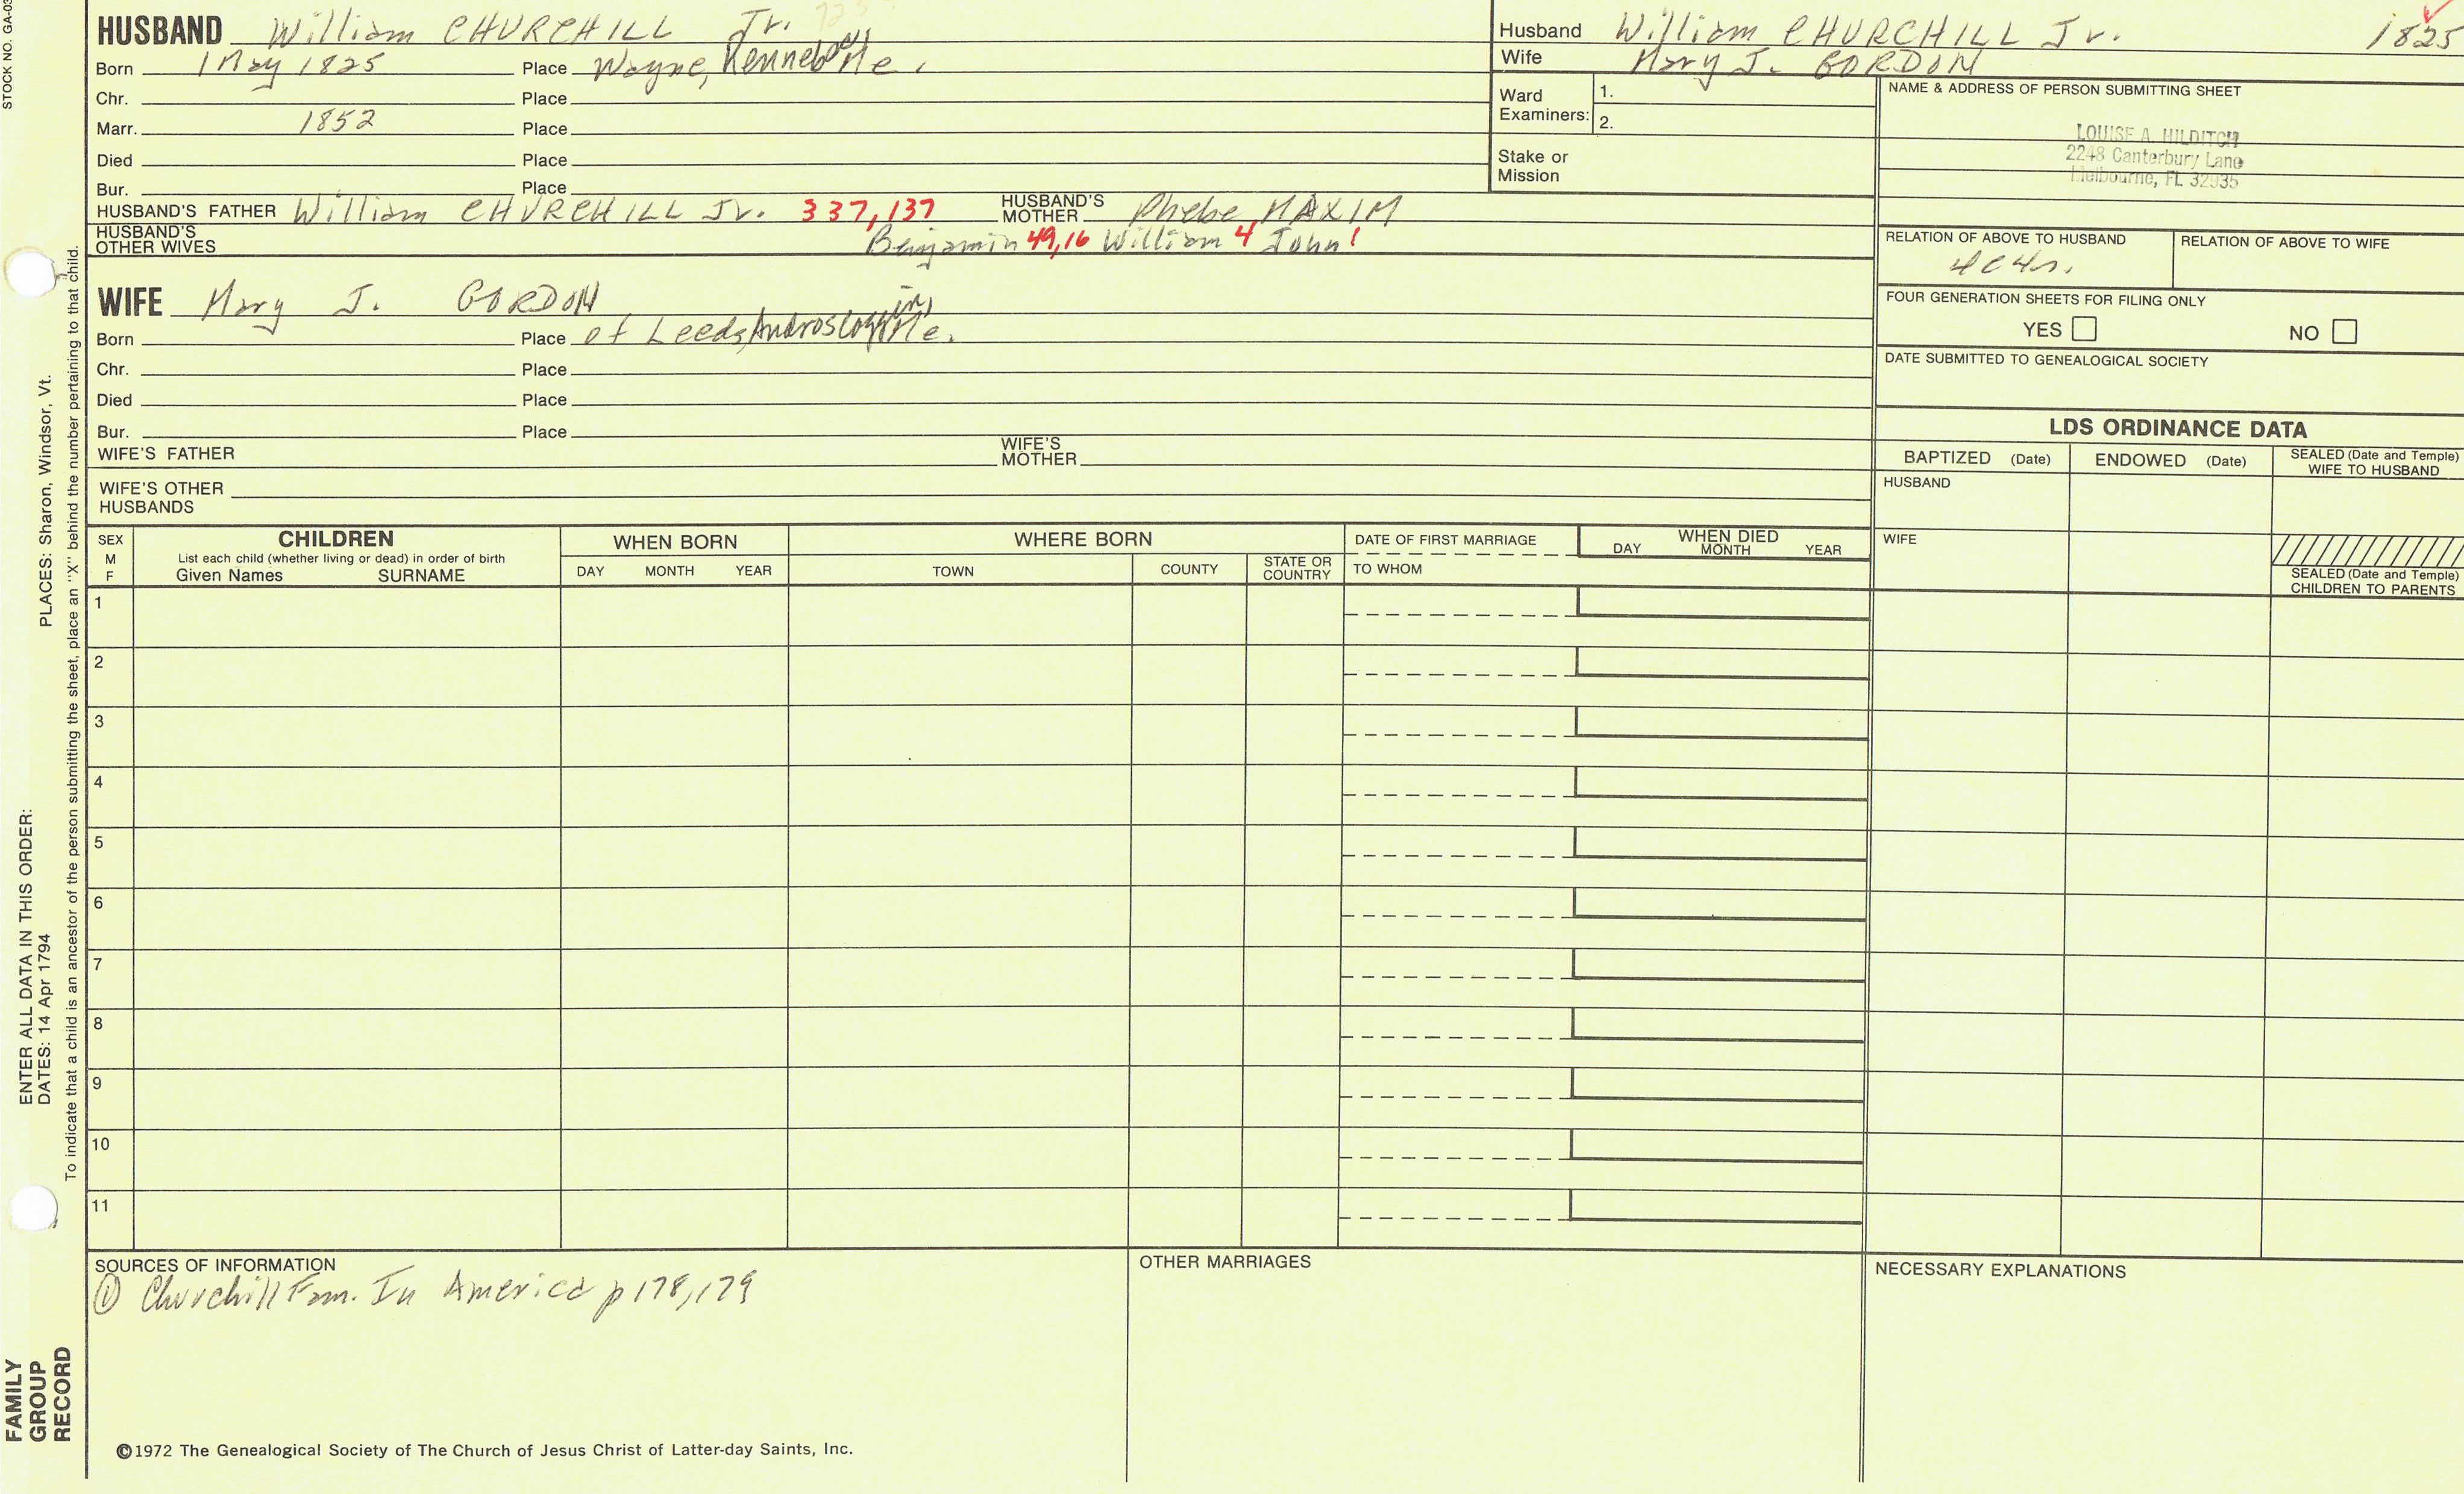 STOCK NO. GA-03
HUSBAND William CHURCHILL Jr.
Born 1 May 1825 Place Wayne, Kennebec, Me.
Chr. Place
Marr. 1852 Place
Died Place
Bur. Place
HUSBAND'S FATHER William CHURCHILL Jr. 337, 137 HUSBAND'S MOTHER Phebe MAXIM
HUSBAND'S OTHER WIVES Benjamin 49, 16 William 4 John 1
WIFE Mary J. GORDON
Born Place of Leeds, Androscoggin, Me.
Chr. Place
Died Place
Bur. Place
WIFE'S FATHER WIFE'S MOTHER
WIFE'S OTHER HUSBANDS
Husband William CHURCHILL Jr. 1825
Wife Mary J. GORDON
Ward Examiners: 1.
2.
Stake or Mission
NAME & ADDRESS OF PERSON SUBMITTING SHEET
LOUISE A. HILDITCH
2248 Canterbury Lane
Melbourne, FL 32935
RELATION OF ABOVE TO HUSBAND RELATION OF ABOVE TO WIFE
4c4r.
FOUR GENERATION SHEETS FOR FILING ONLY
YES NO
DATE SUBMITTED TO GENEALOGICAL SOCIETY
LDS ORDINANCE DATA
BAPTIZED (Date) ENDOWED (Date) SEALED (Date and Temple) WIFE TO HUSBAND
HUSBAND
WIFE
SEALED (Date and Temple) CHILDREN TO PARENTS
SEX M F
CHILDREN
List each child (whether living or dead) in order of birth
Given Names SURNAME
WHEN BORN
DAY MONTH YEAR
WHERE BORN
TOWN COUNTY STATE OR COUNTRY
DATE OF FIRST MARRIAGE
TO WHOM
WHEN DIED
DAY MONTH YEAR
1
2
3
4
5
6
7
8
9
10
11
SOURCES OF INFORMATION
① Churchill Fam. In America p 178, 179
OTHER MARRIAGES
NECESSARY EXPLANATIONS
©1972 The Genealogical Society of The Church of Jesus Christ of Latter-day Saints, Inc.
ENTER ALL DATA IN THIS ORDER:
DATES: 14 Apr 1794
PLACES: Sharon, Windsor, Vt.
To indicate that a child is an ancestor of the person submitting the sheet, place an "X" behind the number pertaining to that child.
FAMILY
GROUP
RECORD